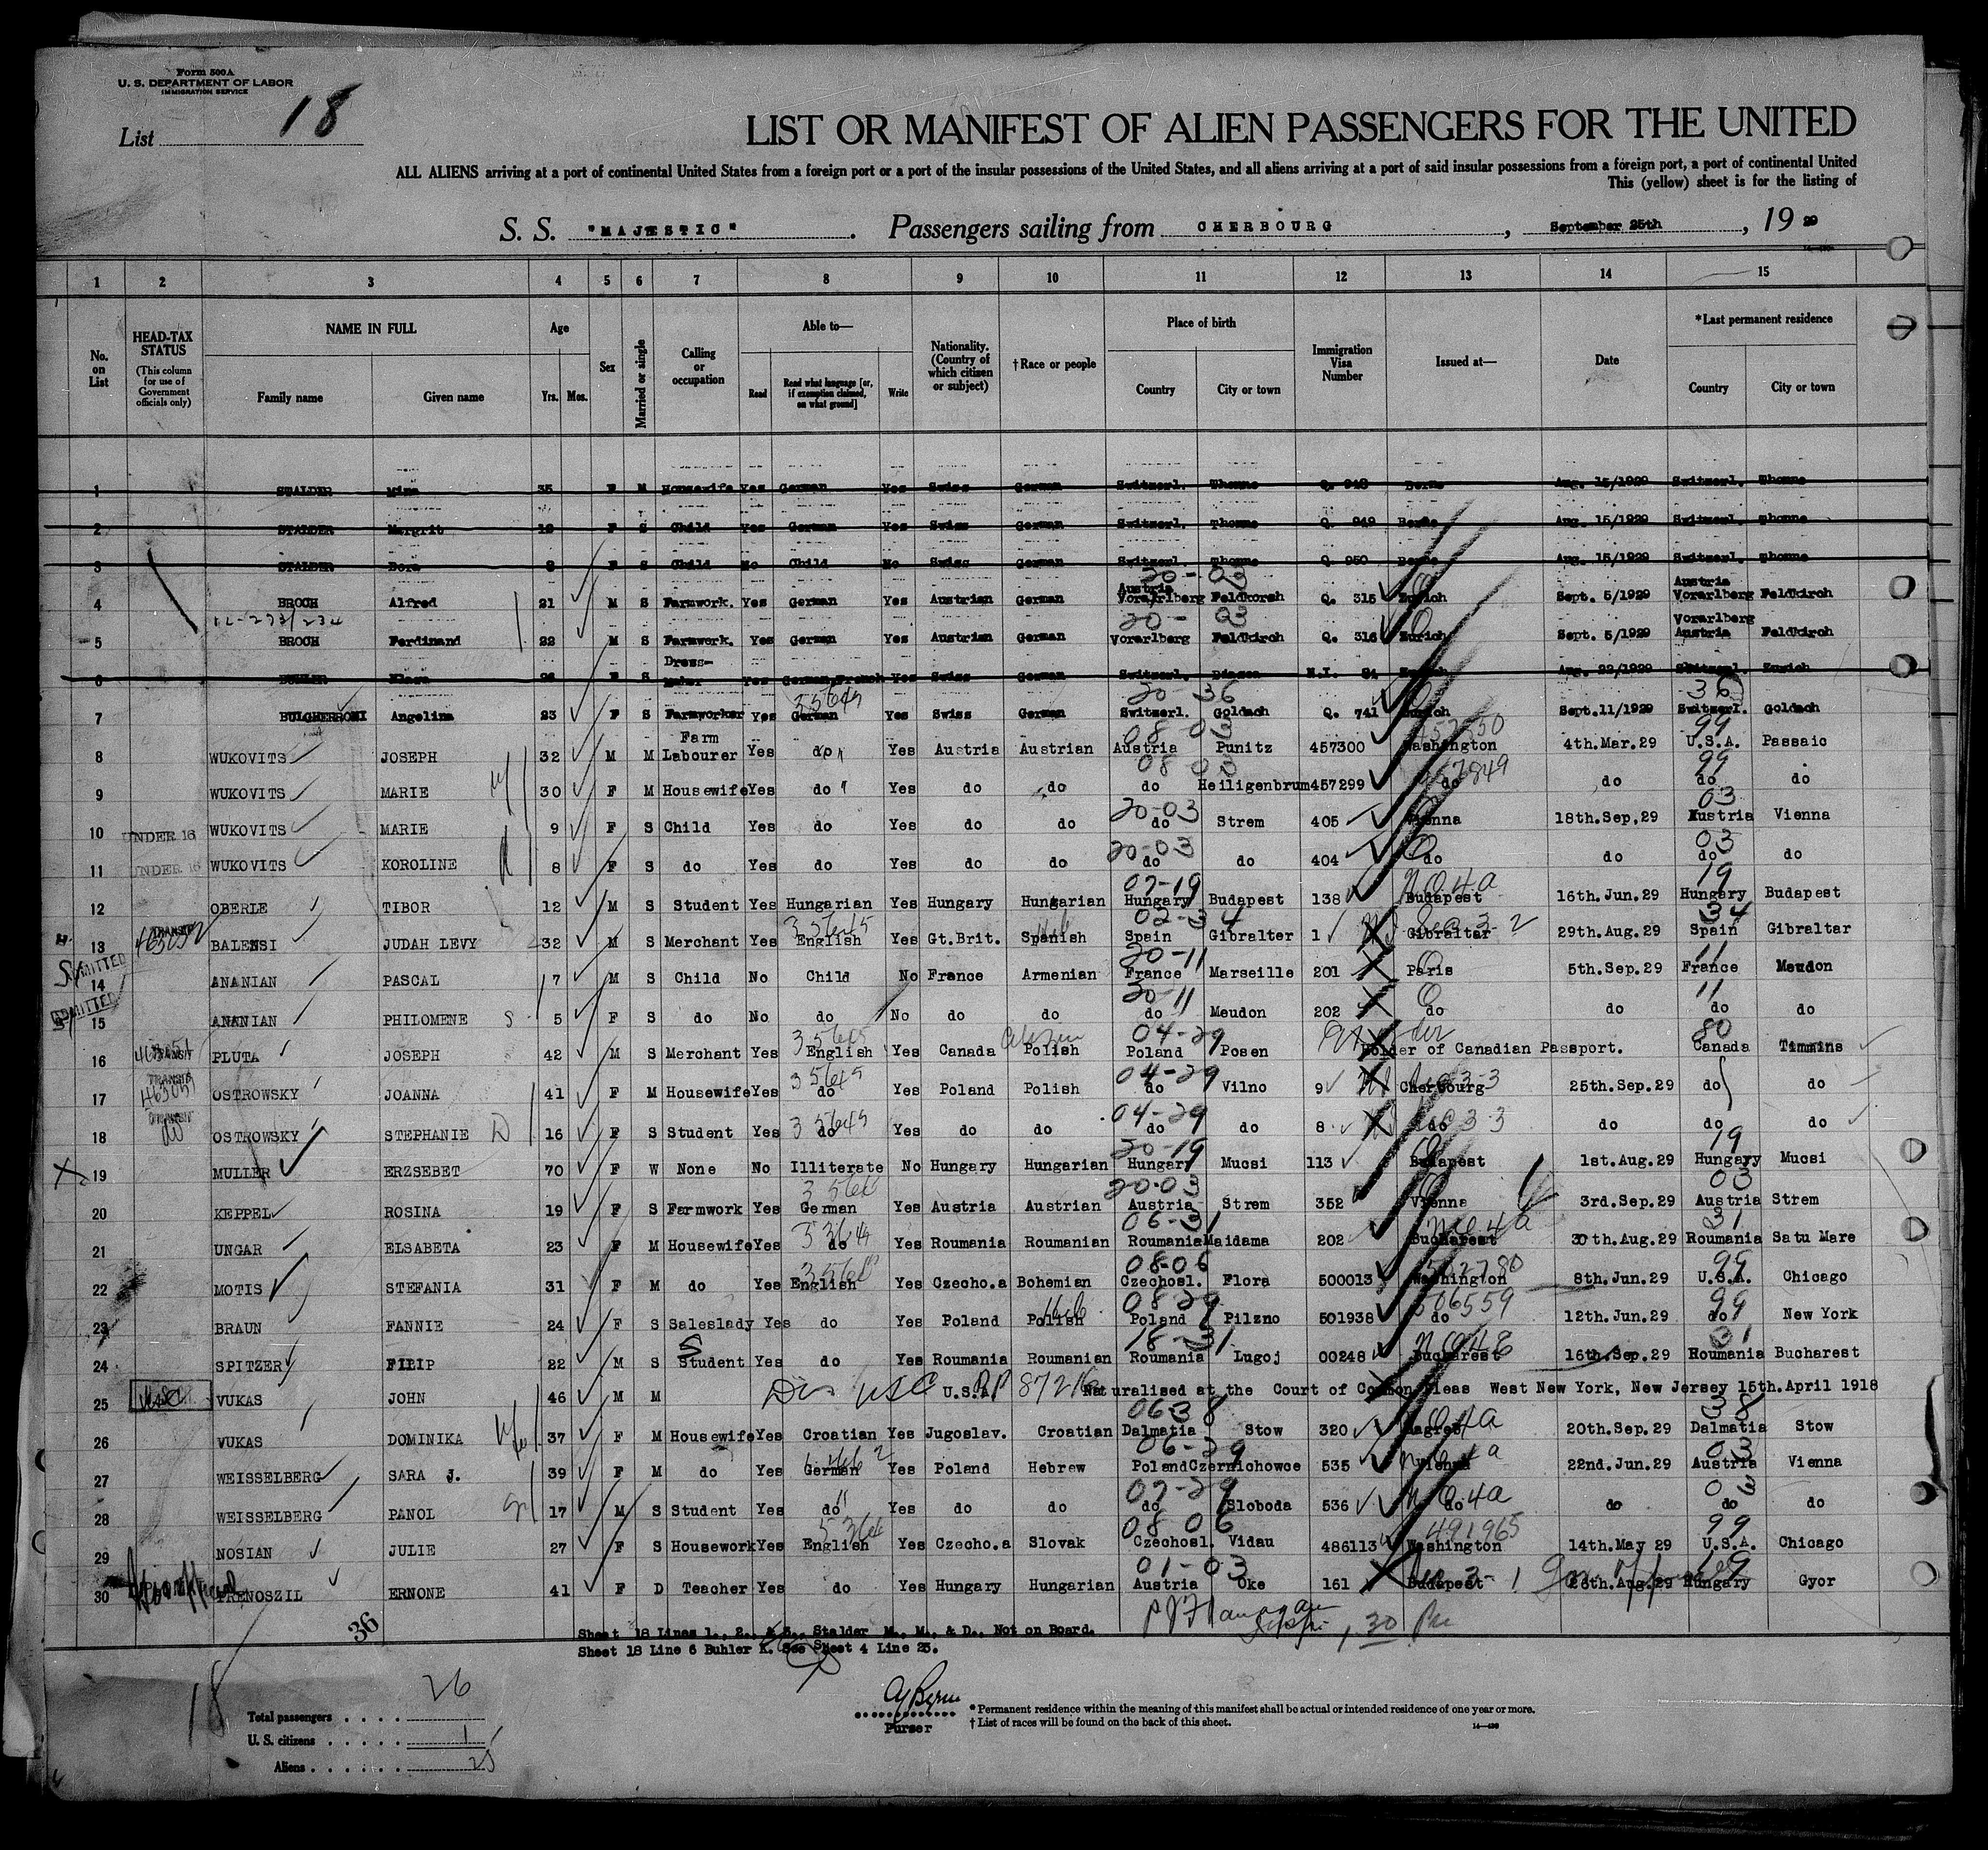 Form 500A
U. S. DEPARTMENT OF LABOR
IMMIGRATION SERVICE
List 18
LIST OR MANIFEST OF ALIEN PASSENGERS FOR THE UNITED
ALL ALIENS arriving at a port of continental United States from a foreign port or a port of the insular possessions of the United States, and all aliens arriving at a port of said insular possessions from a foreign port, a port of continental United
This (yellow) sheet is for the listing of
S. S. "MAJESTIC". Passengers sailing from CHERBOURG, September 25th, 19 29
1 2 3 4 5 6 7 8 9 10 11 12 13 14 15
No. on List
HEAD-TAX STATUS (This column for use of Government officials only)
NAME IN FULL
Family name Given name
Age
Yrs. Mos.
Sex
Married or single
Calling or occupation
Able to—
Read Read what language [or, if exemption claimed, on what ground] Write
Nationality. (Country of which citizen or subject)
†Race or people
Place of birth
Country City or town
Immigration Visa Number
Issued at—
Date
*Last permanent residence
Country City or town
1 STALDER Mina 35 F M Housewife Yes German Yes Swiss German Switzerl. Thonne Q. 948 Berne Aug. 15/1929 Switzerl. Thonne
2 STALDER Margrit 12 F S Child Yes German Yes Swiss German Switzerl. Thonne Q. 949 Berne Aug. 15/1929 Switzerl. Thonne
3 STALDER Dora 8 F S Child No Child No Swiss German Switzerl. Thonne Q. 950 Berne Aug. 15/1929 Switzerl. Thonne
20-03
4 BROCH Alfred 21 M S Farmwork. Yes German Yes Austrian German Austria Vorarlberg Feldkorch Q. 315 Zurich Sept. 5/1929 Austria Vorarlberg Feldkirch
20- 03
5 BROCH Ferdinand 22 M S Farmwork. Yes German Yes Austrian German Vorarlberg Feldkirch Q. 316 Zurich Sept. 5/1929 Vorarlberg Austria Feldkirch
6 BUHLER Klara 26 F S Dress-Maker Yes German, French Yes Swiss German Switzerl. N.I. 84 Zurich Aug. 22/1929 Switzerl. Zurich
20-36 36
7 BULGHERRONI Angelina 23 F S Farmworker Yes German Yes Swiss German Switzerl. Goldach Q. 741 Zurich Sept.11/1929 Switzerl. Goldach
08 03 99
8 WUKOVITS JOSEPH 32 M M Farm Labourer Yes do Yes Austria Austrian Austria Punitz 457300 Washington 4th.Mar.29 U.S.A. Passaic
08 03 99
9 WUKOVITS MARIE 30 F M Housewife Yes do Yes do do do Heiligenbrum 457299 do do do do
20-03 03
10 UNDER 16 WUKOVITS MARIE 9 F S Child Yes do Yes do do do Strem 405 Vienna 18th.Sep.29 Austria Vienna
20-03 03
11 UNDER 16 WUKOVITS KOROLINE 8 F S do Yes do Yes do do do do 404 do do do do
07-19 19
12 OBERLE TIBOR 12 M S Student Yes Hungarian Yes Hungary Hungarian Hungary Budapest 138 Budapest 16th.Jun.29 Hungary Budapest
02-34 34
13 TRANSIT BALENSI JUDAH LEVY 32 M S Merchant Yes English Yes Gt.Brit. Spanish Spain Gibralter 1 Gibraltar 29th.Aug.29 Spain Gibraltar
20-11 11
14 ADMITTED ANANIAN PASCAL 7 M S Child No Child No France Armenian France Marseille 201 Paris 5th.Sep.29 France Meudon
20-11 11
15 ADMITTED ANANIAN PHILOMENE 5 F S do No do No do do do Meudon 202 do do do do
04-29 80
16 TRANSIT PLUTA JOSEPH 42 M S Merchant Yes English Yes Canada Polish Poland Posen Holder of Canadian Passport. Canada Timmins
04-29
17 TRANSIT OSTROWSKY JOANNA 41 F M Housewife Yes do Yes Poland Polish do Vilno 9 Cherbourg 25th.Sep.29 do do
04-29
18 TRANSIT OSTROWSKY STEPHANIE 16 F S Student Yes do Yes do do do do 8 do do do do
20-19 19
19 MULLER ERZSEBET 70 F W None No Illiterate No Hungary Hungarian Hungary Mucsi 113 Budapest 1st.Aug.29 Hungary Mucsi
20-03 03
20 KEPPEL ROSINA 19 F S Farmwork Yes German Yes Austria Austrian Austria Strem 352 Vienna 3rd.Sep.29 Austria Strem
06-31 31
21 UNGAR ELSABETA 23 F M Housewife Yes do Yes Roumania Roumanian Roumania Maidama 202 Bucharest 30th.Aug.29 Roumania Satu Mare
08-06 99
22 MOTIS STEFANIA 31 F M do Yes English Yes Czecho.a Bohemian Czechosl. Flora 500013 Washington 8th.Jun.29 U.S.A. Chicago
08 29 506559 99
23 BRAUN FANNIE 24 F S Saleslady Yes do Yes Poland Polish Poland Pilzno 501938 do 12th.Jun.29 do New York
18-31 31
24 SPITZER FILIP 22 M S Student Yes do Yes Roumania Roumanian Roumania Lugoj 00248 Bucharest 16th.Sep.29 Roumania Bucharest
25 VUKAS JOHN 46 M M USC U.S.A. Naturalised at the Court of Common Pleas West New York, New Jersey 15th.April 1918
0638 38
26 VUKAS DOMINIKA 37 F M Housewife Yes Croatian Yes Jugoslav. Croatian Dalmatia Stow 320 Zagreb 20th.Sep.29 Dalmatia Stow
06-29 03
27 WEISSELBERG SARA J. 39 F M do Yes German Yes Poland Hebrew Poland Czernichowce 535 Vienna 22nd.Jun.29 Austria Vienna
07-29 03
28 WEISSELBERG PANOL 17 M S Student Yes do Yes do do do Sloboda 536 do do do do
08 06 491965 99
29 NOSIAN JULIE 27 F S Housework Yes English Yes Czecho.a Slovak Czechosl. Vidau 486113 Washington 14th.May 29 U.S.A. Chicago
01-03 19
30 PRENOSZIL ERNONE 41 F D Teacher Yes do Yes Hungary Hungarian Austria Oke 161 Budapest 28th.Aug.29 Hungary Gyor
36
Sheet 18 Lines 1., 2., & 3., Stalder M., M., & D., Not on Board.
Sheet 18 Line 6 Buhler K. See Sheet 4 Line 25.
18
Total passengers . . . . 26
U. S. citizens . . . . . 1
Aliens . . . . . . 25
Purser
*Permanent residence within the meaning of this manifest shall be actual or intended residence of one year or more.
†List of races will be found on the back of this sheet.